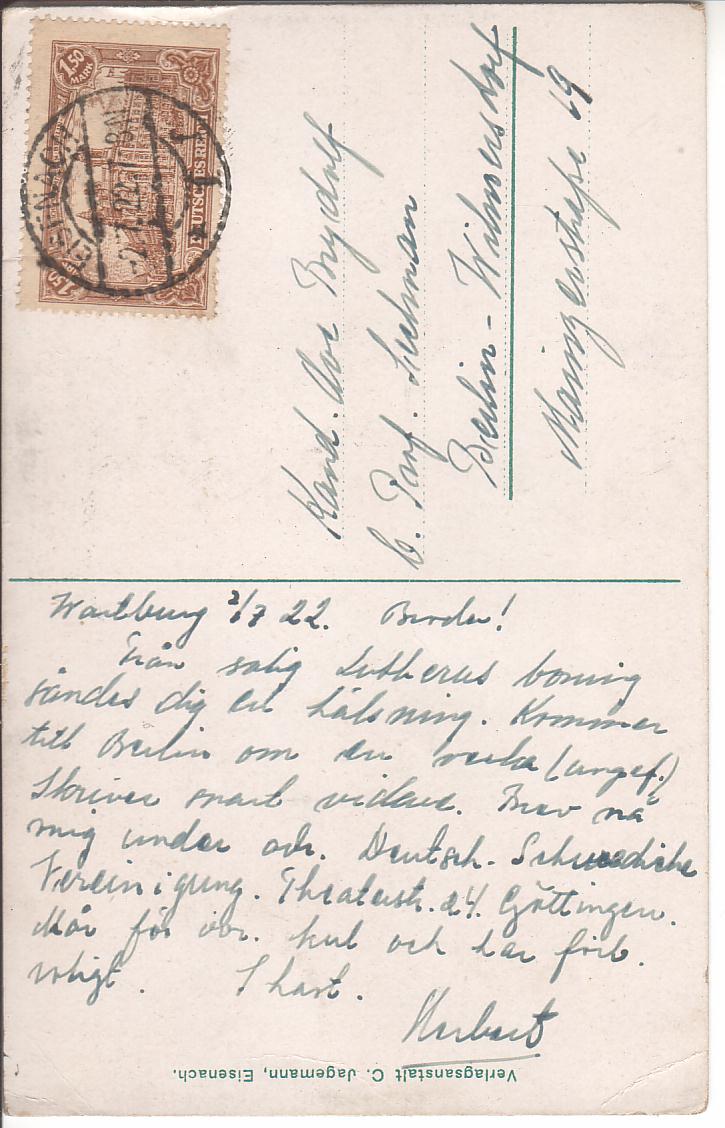 1,50
MARK
DEUTSCHES REICH
1,50
EISENACH
-2.7.22.
1
Kand. Ivar Brydolf
b. Prof. Luchman
Berlin-Wilmersdorf
Mainzerstraße 19
Wartburg 2/7 22. Broder!
Från salig Lutherus boning
sändes dig en hälsning. Kommer
till Berlin om en vecka (ungef.)
Skriver snart vidare. Brev nå
mig under adr. Deutsch-Schwedische
Vereinigung. Theaterstr. 24. Göttingen.
Mår för övr. kul och har förb.
roligt. I hast.
Herbert
Verlagsanstalt C. Jagemann, Eisenach.